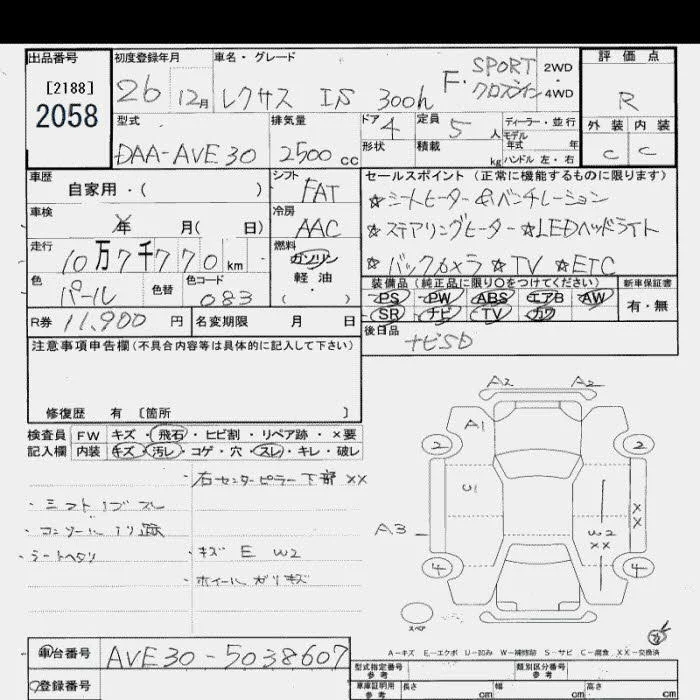 出品番号
[2188]
2058
初度登録年月
26 12月
車名・グレード
レクサス IS 300h F・SPORT クロスライン
2WD
・
4WD
評価点
R
外装 内装
C C
型式
DAA-AVE30
排気量
2500 cc
ドア 4
形状
定員 5 人
積載 kg
ディーラー・並行
モデル
年式 年
ハンドル 左・右
車歴
自家用・( )
シフト
FAT
車検
年 月( 日)
冷房
AAC
走行
10万7千770 km
燃料
ガソリン
軽油
( )
色
パール
色替
色コード
083
R券 11,900 円
名変期限 月 日
セールスポイント(正常に機能するものに限ります)
☆シートヒーター&ベンチレーション
☆ステアリングヒーター ☆LEDヘッドライト
☆バックカメラ ☆TV ☆ETC
装備品(純正品に限り○をつけてください)
PS PW ABS エアB AW
SR ナビ TV カワ
新車保証書
有・無
後日品
ナビSD
注意事項申告欄(不具合内容等は具体的に記入して下さい)
修復歴 有 〔箇所 〕
検査員 FW キズ・飛石・ヒビ割・リペア跡・×要
記入欄 内装 キズ・汚レ・コゲ・穴・スレ・キレ・破レ
・右センターピラー下部 XX
・シフトノブスレ
・コンソール
・シートヘタリ
・キズ E W2
・ホイールガリキズ
A2 A2
A1
2 2
U1
XX
A3
W2
XX
4 4
スペア
A-キズ E-エクボ U-凹み W-補修跡 S-サビ C-腐食 XX-交換済
車台番号
AVE30-5038607
登録番号
型式指定番号
参考
類別区分番号
参考
車庫証明用
参考
長さ cm
幅 cm
高さ cm